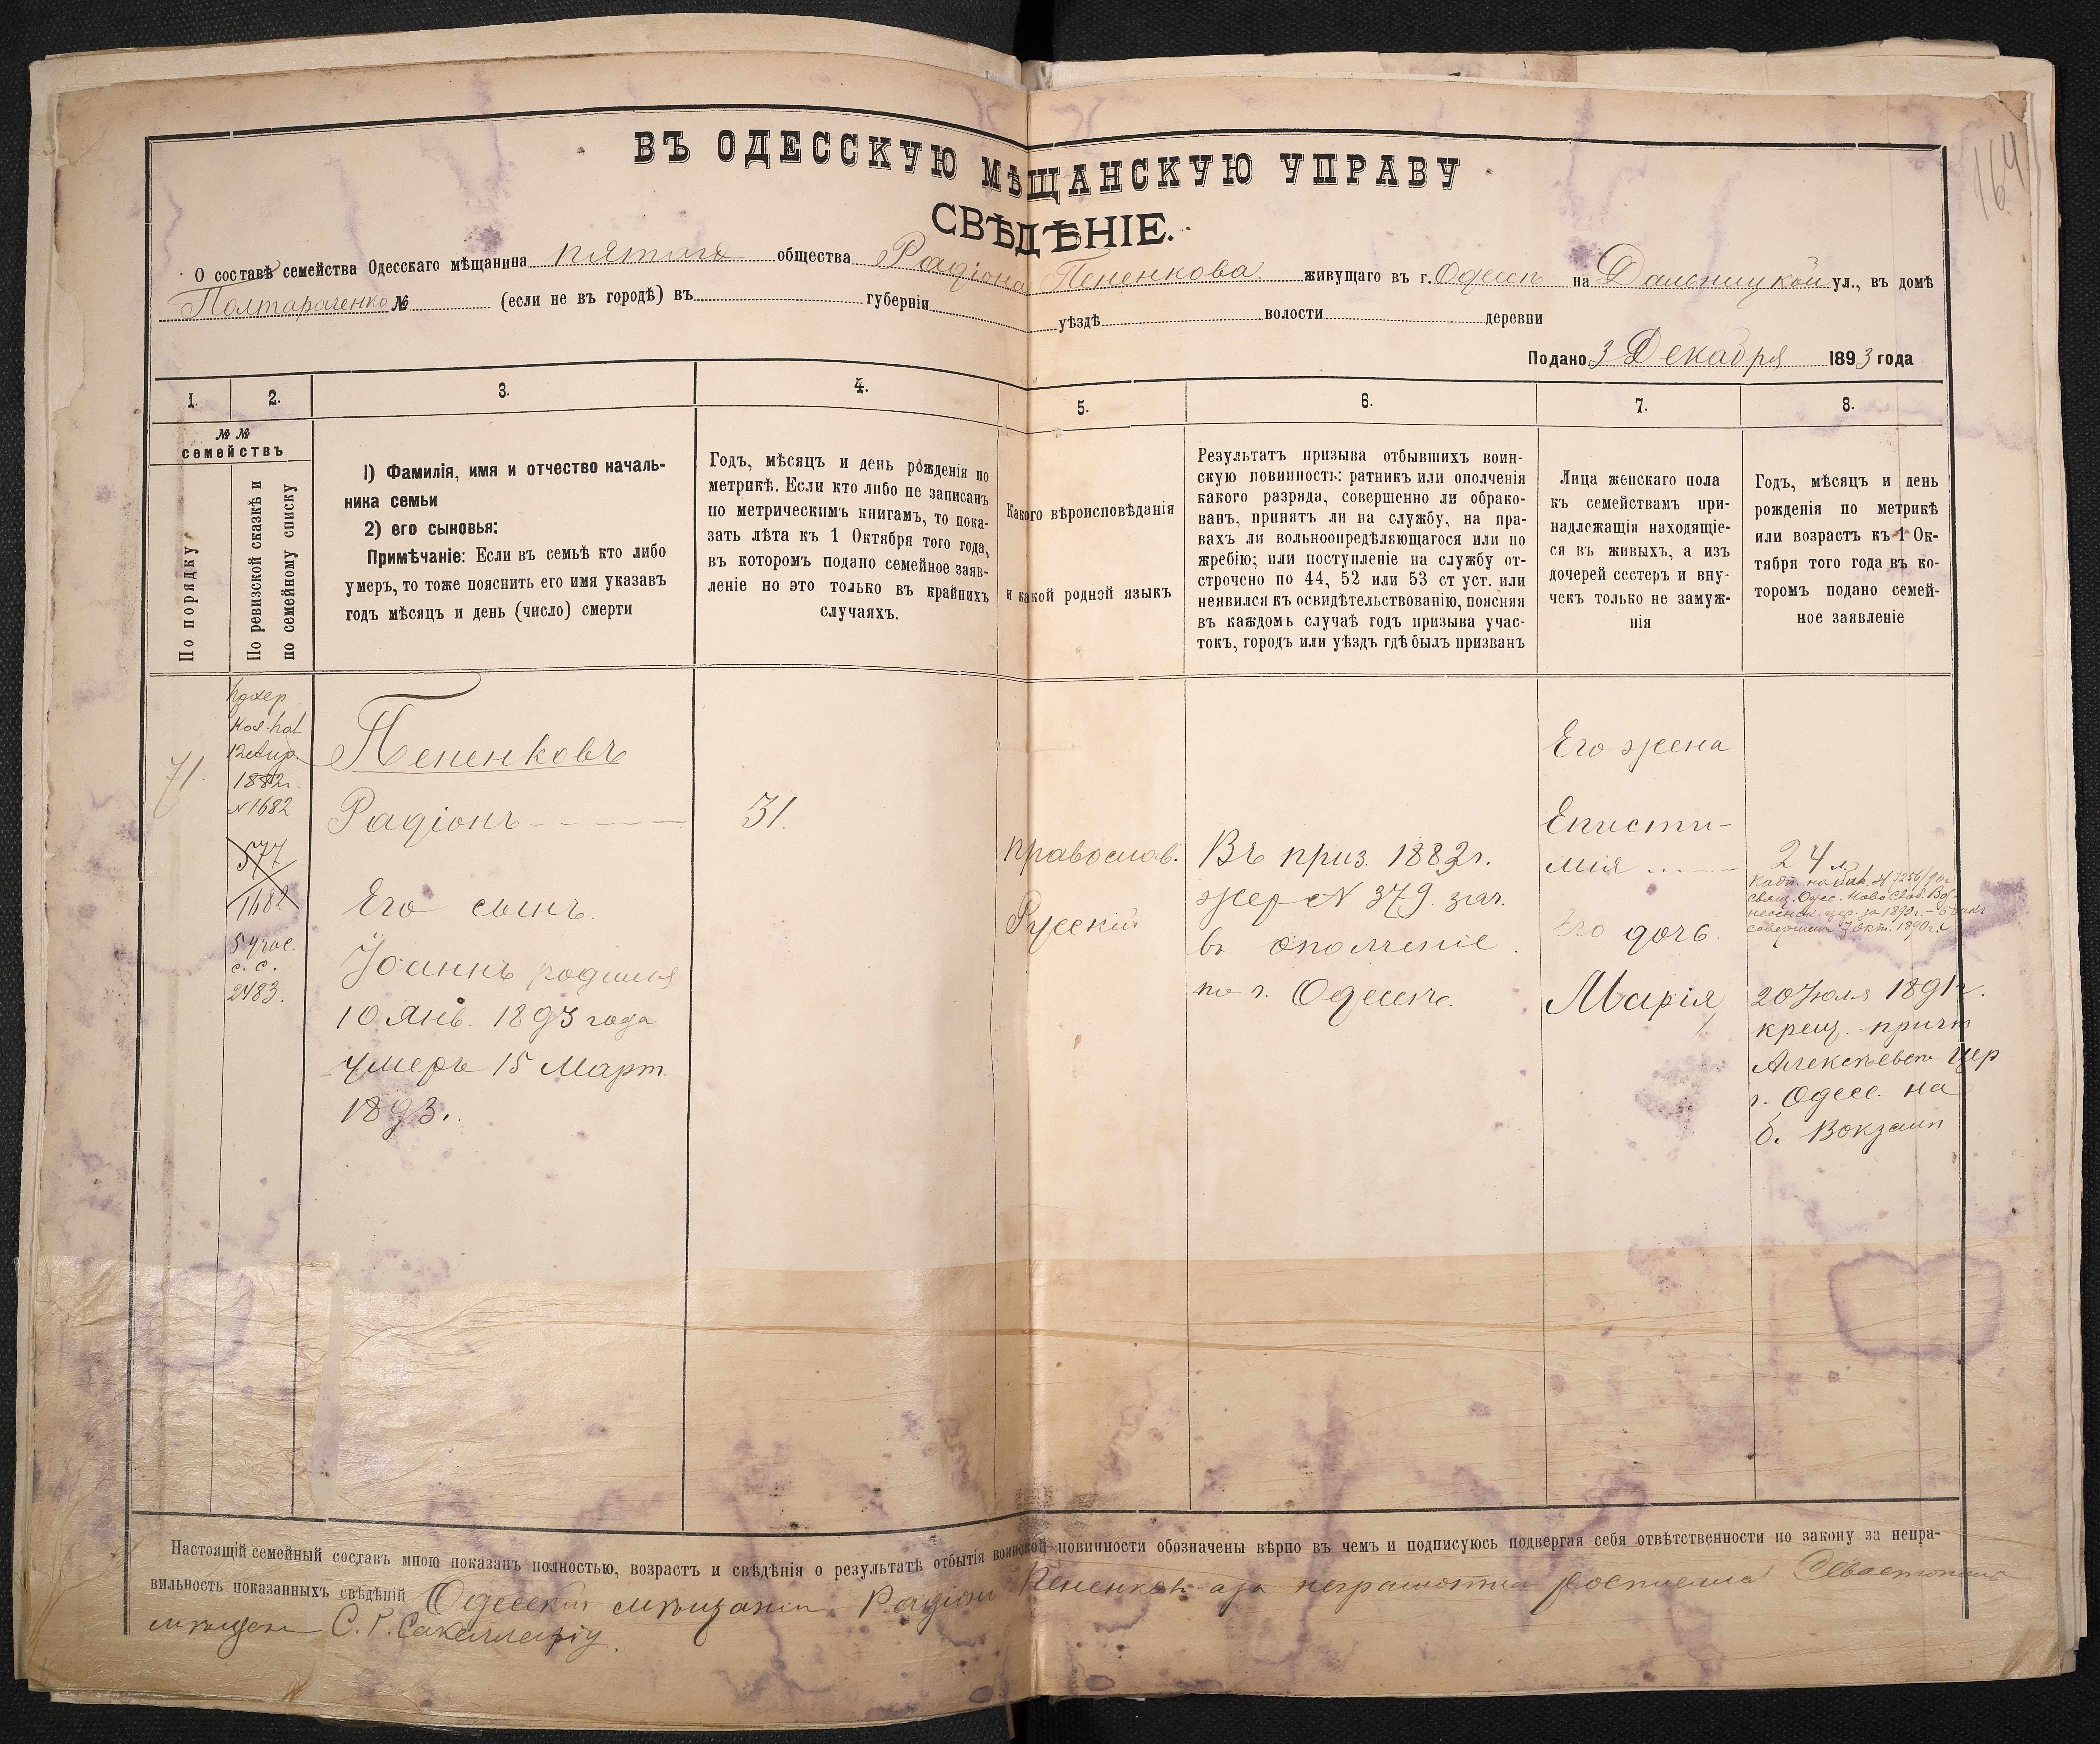 164
ВЪ ОДЕССКУЮ МѢЩАНСКУЮ УПРАВУ
СВѢДѢНІЕ.
О составѣ семейства Одесскаго мѣщанина пятаго общества Радіона Пененкова живущаго въ г. Одессѣ на Дальницкой ул., въ домѣ
Полтараченко № (если не въ городѣ) въ губерніи уѣздѣ волости деревни
Подано 3 Декабря 1893 года
1.
2.
3.
4.
5.
6.
7.
8.
№ №
семействъ
По порядку
По ревизской сказкѣ и
по семейному списку
1) Фамилія, имя и отчество началь-
ника семьи
2) его сыновья:
Примѣчаніе: Если въ семьѣ кто либо
умеръ, то тоже пояснить его имя указавъ
годъ мѣсяцъ и день (число) смерти
Годъ, мѣсяцъ и день рожденія по
метрикѣ. Если кто либо не записанъ
по метрическимъ книгамъ, то пока-
зать лѣта къ 1 Октября того года,
въ которомъ подано семейное заяв-
леніе но это только въ крайнихъ
случаяхъ.
Какого вѣроисповѣданія
и какой родной языкъ
Результатъ призыва отбывшихъ воин-
скую повинность: ратникъ или ополченія
какого разряда, совершенно ли обрако-
ванъ, принятъ ли на службу, на пра-
вахъ ли вольноопредѣляющагося или по
жребію; или поступленіе на службу от-
строчено по 44, 52 или 53 ст уст. или
неявился къ освидѣтельствованію, поясняя
въ каждомь случаѣ годъ призыва учас-
токъ, городъ или уѣздъ гдѣ былъ призванъ
Лица женскаго пола
къ семействамъ при-
надлежащія находящіе-
ся въ живыхъ, а изъ
дочерей сестеръ и вну-
чекъ только не замуж-
нія
Годъ, мѣсяцъ и день
рожденія по метрикѣ
или возрастъ къ 1 Ок-
тября того года въ ко-
торомъ подано семей-
ное заявленіе
71.
1882г.
№ 1682
577
1682
5 учас.
с. с.
2483.
Пененковъ
Радіонъ
Его сынъ.
Іоаннъ родился
10 Янв. 1893 года
умеръ 15 Март.
1893.
31.
православ.
Русскій
Въ приз. 1883г.
жер № 379. зач.
въ ополченіе.
по г. Одессѣ.
Его жена
Еписти-
мія
Его дочь.
Марія
24 л.
20 Іюля 1891г.
крещ. причт
Алексѣевск. цер
г. Одесс. на
б. Вокзалѣ
Настоящій семейный составъ мною показанъ полностью, возрастъ и свѣдѣнія о результатѣ отбытія воинской повинности обозначены вѣрно въ чемъ и подписуюсь подвергая себя отвѣтственности по закону за непра-
вильность показанныхъ свѣдѣній Одесскій мѣщанинъ Радіон Пененковъ а за неграмотна
мѣщан С. Г. Сакелларіу.